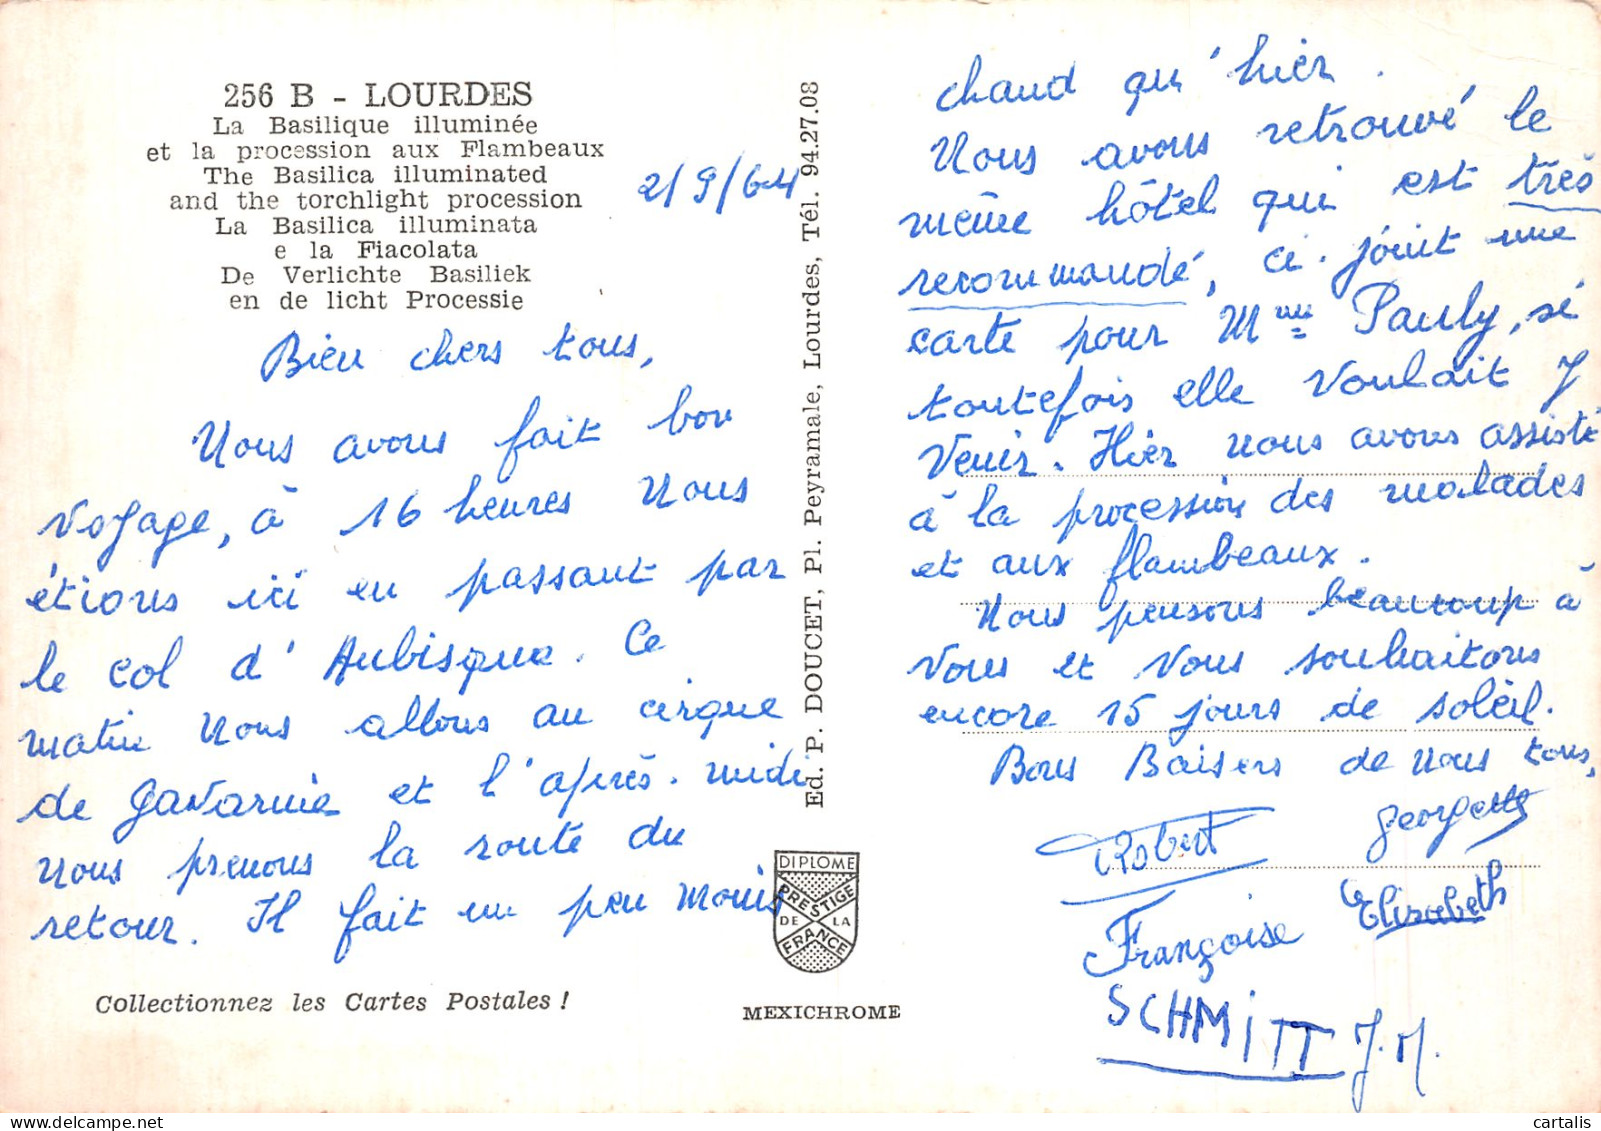 256 B - LOURDES
La Basilique illuminée
et la procession aux Flambeaux
The Basilica illuminated
and the torchlight procession
La Basilica illuminata
e la Fiacolata
De Verlichte Basiliek
en de licht Processie
2/9/64
Bien chers tous,
Nous avons fait bon
voyage, à 16 heures nous
étions ici en passant par
le col d'Aubisque. Ce
matin nous allons au cirque
de Gavarnie et l'après-midi
nous prenons la route du
retour. Il fait un peu moins
Collectionnez les Cartes Postales !
Ed. P. DOUCET, Pl. Peyramale, Lourdes, Tél. 94.27.08
DIPLOME
PRESTIGE
DE LA
FRANCE
MEXICHROME
chaud qu'hier.
Nous avons retrouvé le
même hôtel qui est très
recommandé, ci-joint une
carte pour Mme Pauly, si
toutefois elle voulait y
venir. Hier nous avons assisté
à la procession des malades
et aux flambeaux.
Nous pensons beaucoup à
vous et vous souhaitons
encore 15 jours de soleil.
Bons Baisers de nous tous,
Robert Georgette
Françoise Elisabeth
SCHMITT J.M.
cartalis